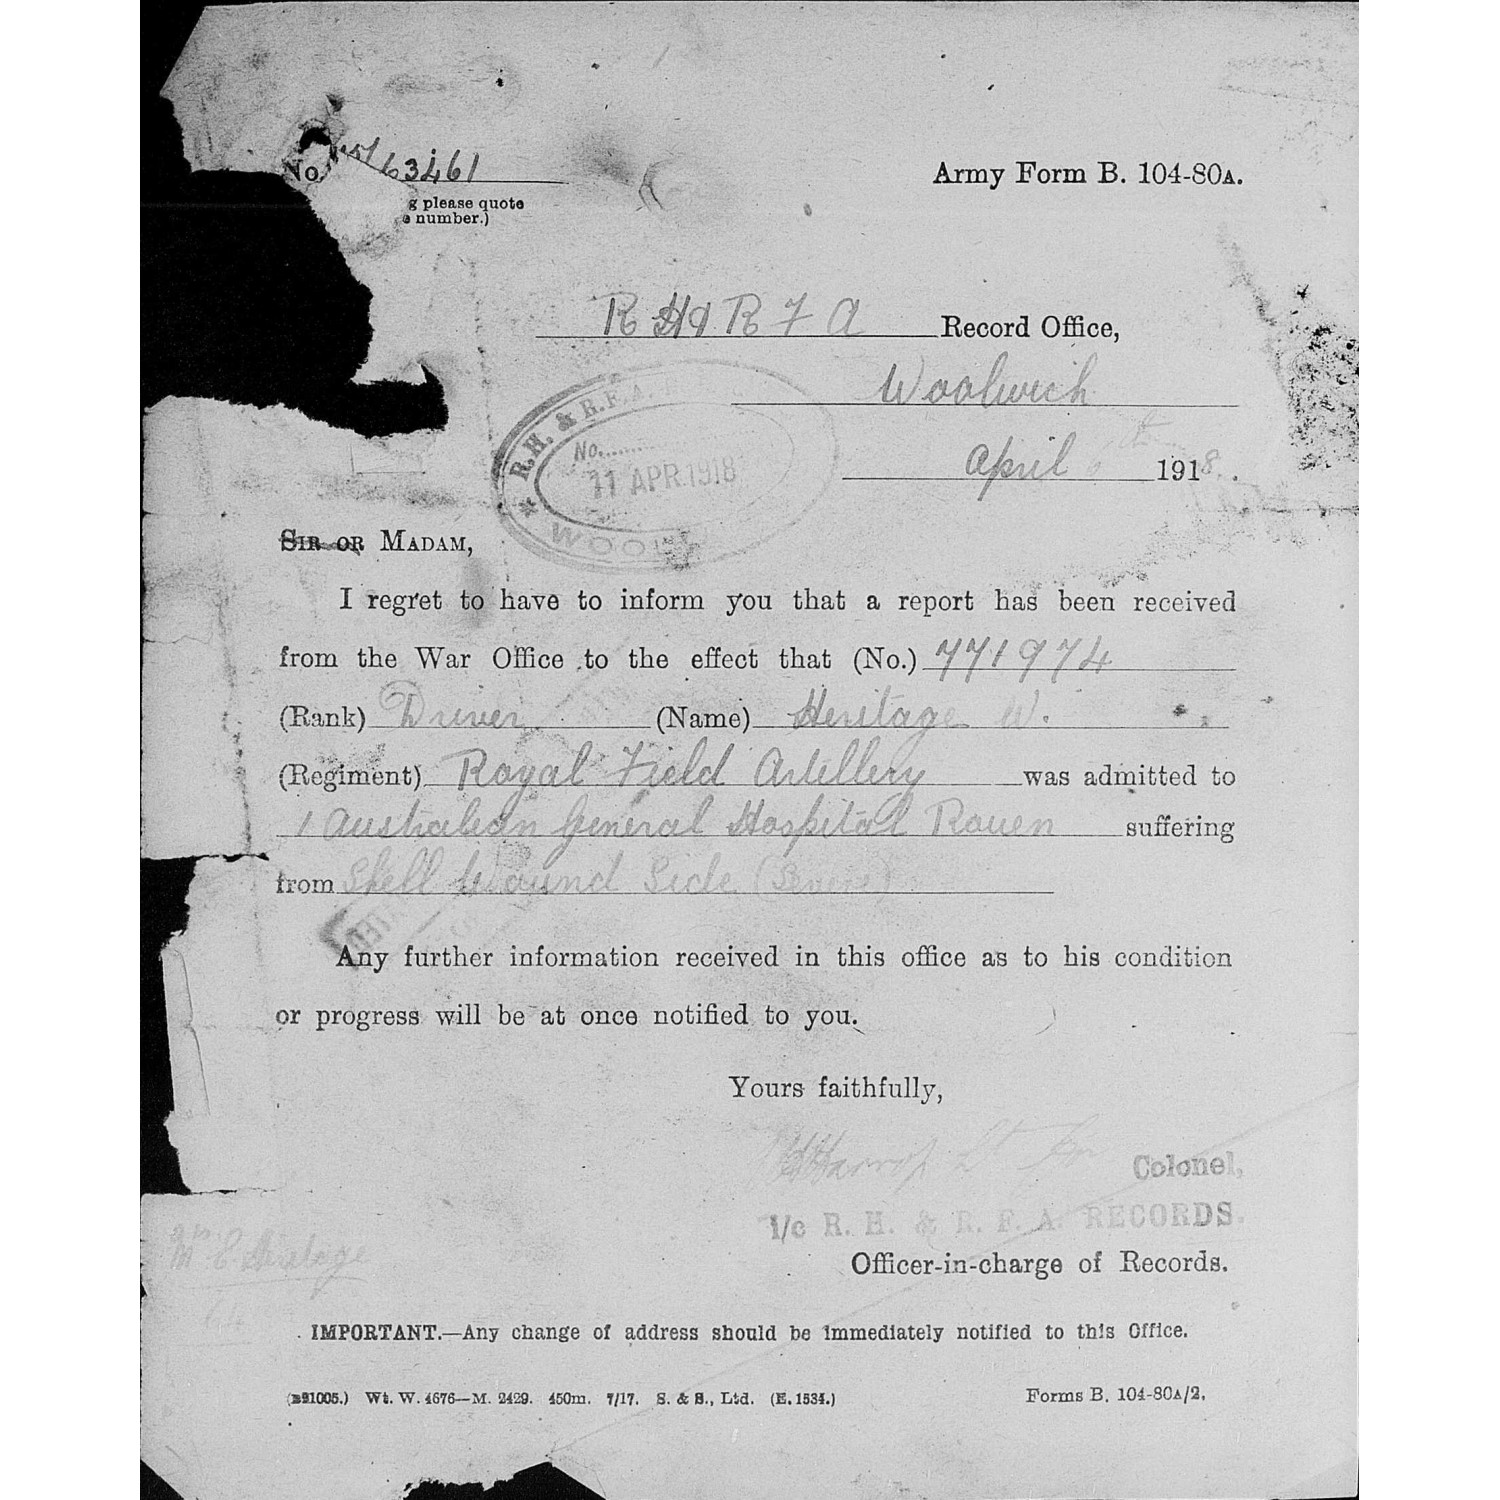 No. 63461
Army Form B. 104-80A.
g please quote
e number.)
R H & R F A Record Office,
Woolwich
April 6th 1918.
R.H. & R.F.A.
No........
11 APR.1918
WOOL
SIR OR MADAM,
I regret to have to inform you that a report has been received
from the War Office to the effect that (No.) 771974
(Rank) Driver (Name) Heritage W.
(Regiment) Royal Field Artillery was admitted to
1 Australian General Hospital Rouen suffering
from Shell Wound Side (Severe)
Any further information received in this office as to his condition
or progress will be at once notified to you.
Yours faithfully,
Lt for Colonel,
I/c R. H. & R. F. A. RECORDS.
Officer-in-charge of Records.
Mrs E. Heritage
IMPORTANT.—Any change of address should be immediately notified to this Office.
(B21005.) Wt. W. 4676—M. 2429. 450m. 7/17. S. & S., Ltd. (E. 1534.)
Forms B. 104-80A/2.